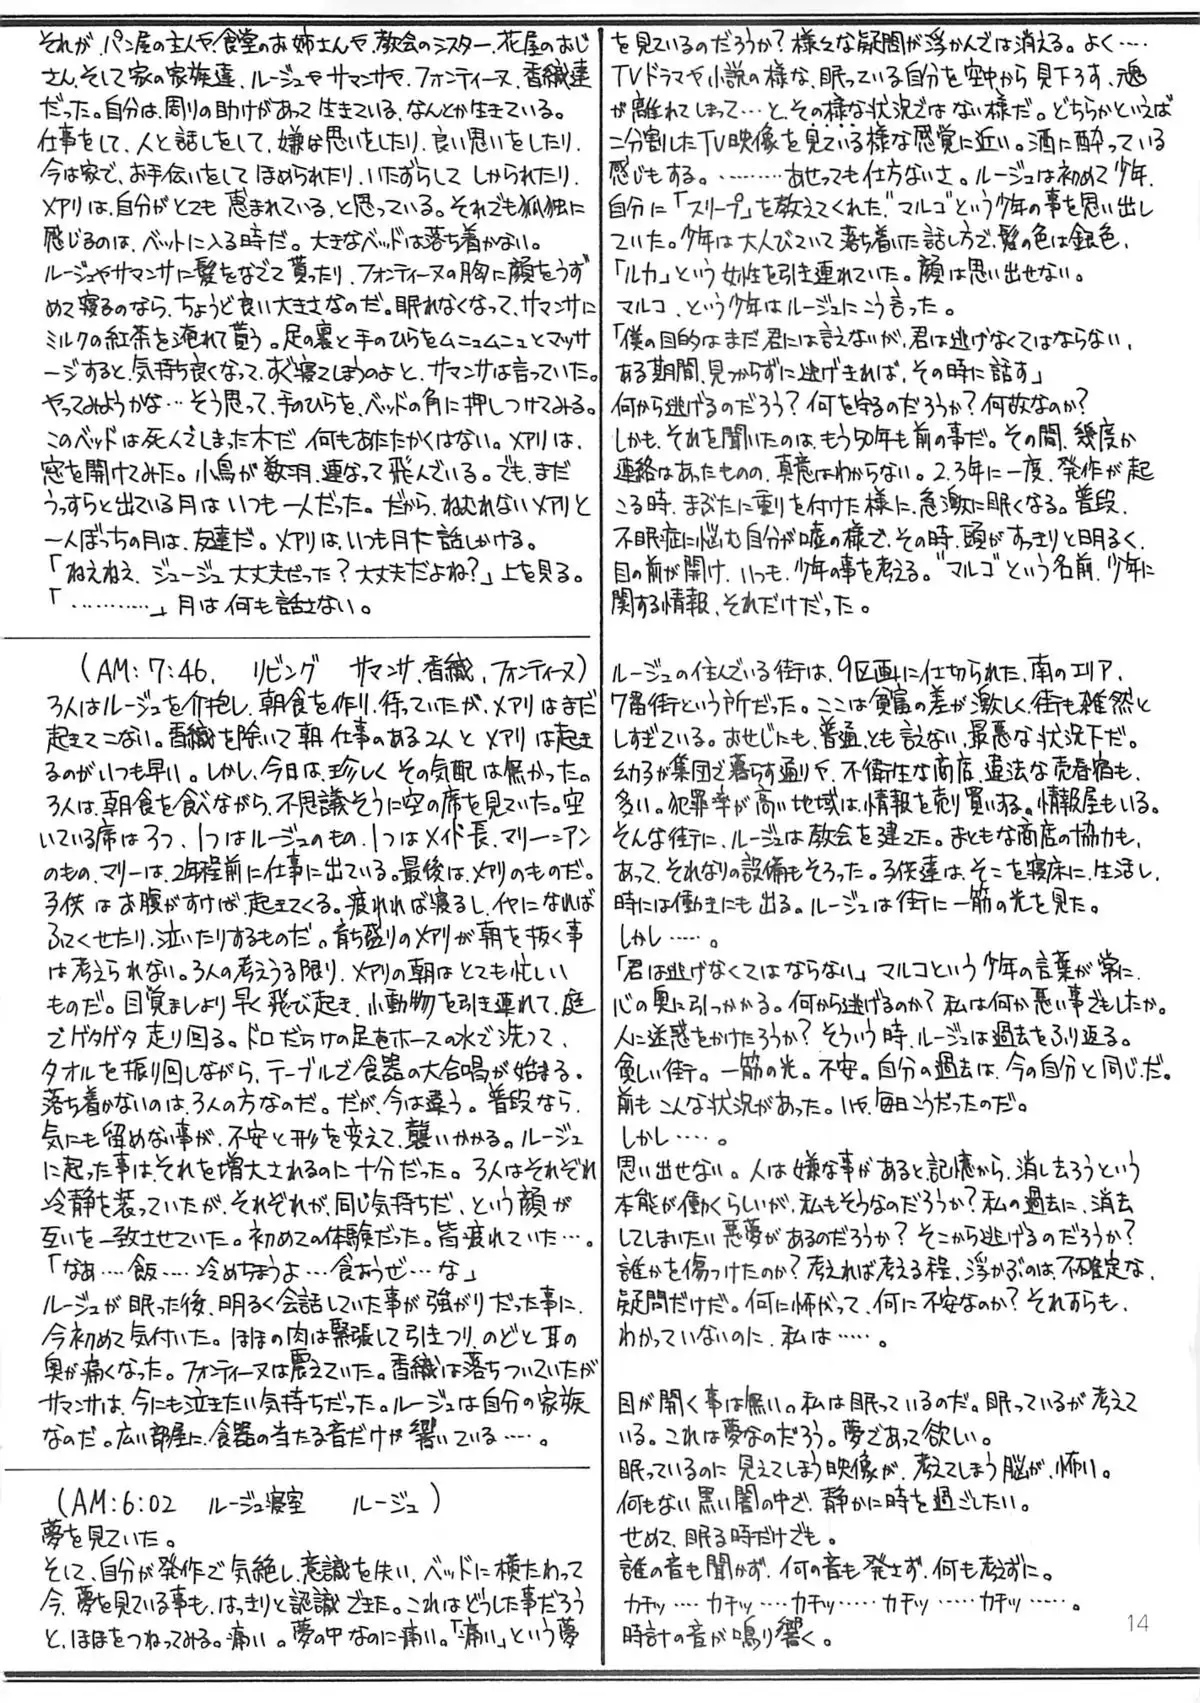 それが、パン屋の主人や、食堂のお姉さんや、教会のシスター、花屋のおじ
さん、そして家の家族達、ルージュやサマンサや、フォンティーヌ、香織達
だった。自分は、周りの助けがあって生きている、なんとか生きている。
仕事をして、人と話しをして、嫌な思いをしたり、良い思いをしたり、
今は家で、お手伝いをしてほめられたり、いたずらしてしかられたり、
メアリは、自分がとても恵まれている、と思っている。それでも孤独に
感じるのは、ベットに入る時だ。大きなベッドは落ち着かない。
ルージュやサマンサに髪をなでて貰ったり、フォンティーヌの胸に顔をうず
めて寝るのなら、ちょうど良い大きさなのだ。眠れなくなって、サマンサに
ミルクの紅茶を淹れて貰う。足の裏と手のひらをムニュムニュとマッサ
ージすると、気持ち良くなって、すぐ寝てしまうのよと、サマンサは言っていた。
やってみようかな…そう思って、手のひらを、ベッドの角に押しつけてみる。
このベッドは死んでしまった木だ 何もあたたかくはない。メアリは、
窓を開けてみた。小鳥が数羽、連なって飛んでいる。でも、まだ
うっすらと出ている月はいつも一人だった。だから、ねむれないメアリと
一人ぼっちの月は、友達だ。メアリは、いつも月に話しかける。
「ねえねえ、ジュージュ大丈夫だった?大丈夫だよね?」上を見る。
「…………」月は何も話さない。
(AM:7:46, リビング サマンサ、香織、フォンティーヌ)
3人はルージュを介抱し、朝食を作り、待っていたが、メアリはまだ
起きてこない。香織を除いて朝、仕事のある2人とメアリは起き
るのがいつも早い。しかし、今日は、珍しくその気配は無かった。
3人は、朝食を食べながら、不思議そうに空の席を見ていた。空
いている席は3つ、1つはルージュのもの、1つはメイド長、マリー=アン
のもの、マリーは、2年程前に仕事に出ている。最後は、メアリのものだ。
子供はお腹がすけば、起きてくる。疲れれば寝るし、イヤになれば
ふてくせたり、泣いたりするものだ。育ち盛りのメアリが朝を抜く事
は考えられない。3人の考えうる限り、メアリの朝はとても忙しい
ものだ。目覚ましより早く飛び起き、小動物を引き連れて、庭
でゲタゲタ走り回る。ドロだらけの足をホースの水で洗って、
タオルを振り回しながら、テーブルで食器の大合唱が始まる。
落ち着かないのは、3人の方なのだ。だが、今は違う。普段なら、
気にも留めない事が、不安と形を変えて、襲いかかる。ルージュ
に起った事は、それを増大されるのに十分だった。3人はそれぞれ
冷静を装っていたが、それぞれが、同じ気持ちだ、という顔が
互いを一致させていた。初めての体験だった。皆疲れていた…。
「なぁ……飯……冷めちまうよ…食おうぜ…な」
ルージュが眠った後、明るく会話していた事が強がりだった事に、
今初めて気付いた。ほほの肉は緊張して引きつり、のどと耳の
奥が痛くなった。フォンティーヌは震えていた。香織は落ちついていたが
サマンサは、今にも泣きたい気持ちだった。ルージュは自分の家族
なのだ。広い部屋に、食器の当たる音だけが響いている……。
(AM:6:02 ルージュ寝室 ルージュ)
夢を見ていた。
そして、自分が発作で気絶し、意識を失い、ベッドに横たわって
今、夢を見ている事も、はっきりと認識できた。これはどうした事だろう
と、ほほをつねってみる。痛い。夢の中なのに痛い。「痛い」という夢
を見ているのだろうか?様々な疑問が浮かんでは消える。よく……
TVドラマや小説の様な、眠っている自分を空中から見下ろす、魂
が離れてしまって…と、その様な状況ではない様だ。どちらかといえば
二分割したTV映像を見ている様な感覚に近い。酒に酔っている
感じもする。………あせっても仕方ないさ。ルージュは初めて少年、
自分に「スリープ」を教えてくれた“マルコ”という少年の事を思い出し
ていた。少年は大人びていて落ち着いた話し方で、髪の色は銀色、
「ルカ」という女性を引き連れていた。顔は思い出せない。
マルコ、という少年はルージュにこう言った。
「僕の目的はまだ君には言えないが、君は逃げなくてはならない、
ある期間、見つからずに逃げきれば、その時に話す」
何から逃げるのだろう?何を守るのだろうか?何故なのか?
しかも、それを聞いたのは、もう50年も前の事だ。その間、幾度か
連絡はあったものの、真意はわからない。2、3年に一度、発作が起
こる時、まぶたに重りを付けた様に、急激に眠くなる。普段、
不眠症に悩む自分が嘘の様で、その時、頭がすっきりと明るく、
目の前が開け、いつも、少年の事を考える。“マルコ”という名前、少年に
関する情報、それだけだった。
ルージュの住んでいる街は、9区画に仕切られた、南のエリア、
7番街という所だった。ここは貧富の差が激しく、街も雑然と
しすぎている。おせじにも、普通とも言えない、最悪な状況下だ。
幼子が集団で暮らす通りや、不衛生な商店、違法な売春宿も、
多い。犯罪率が高い地域は、情報を売り買いする、情報屋もいる。
そんな街に、ルージュは教会を建てた。まともな商店の協力も、
あって、それなりの設備もそろった。子供達は、そこを寝床に、生活し、
時には働きにも出る。ルージュは街に一筋の光を見た。
しかし……。
「君は逃げなくてはならない」マルコという少年の言葉が常に、
心の奥に引っかかる。何から逃げるのか?私は何か悪い事でもしたか。
人に迷惑をかけたろうか?そういう時、ルージュは過去をふり返る。
貧しい街。一筋の光。不安。自分の過去は、今の自分と同じだ。
前もこんな状況があった。いや、毎日こうだったのだ。
しかし……。
思い出せない。人は嫌な事があると記憶から、消し去ろうという
本能が働くらしいが、私もそうなのだろうか?私の過去に、消去
してしまいたい悪夢があるのだろうか?そこから逃げるのだろうか?
誰かを傷つけたのか?考えれば考える程、浮かぶのは、不確定な、
疑問だけだ。何に怖がって、何に不安なのか?それすらも、
わかっていないのに、私は……。
目が開く事は無い。私は眠っているのだ。眠っているが考えて
いる。これは夢なのだろう。夢であって欲しい。
眠っているのに見えてしまう映像が、考えてしまう脳が、怖い。
何もない黒い闇の中で、静かに時を過ごしたい。
せめて、眠る時だけでも。
誰の音も聞かず、何の音も発さず、何も考えずに。
カチッ……カチッ……カチッ……カチッ……カチッ……。
時計の音が鳴り響く。
14